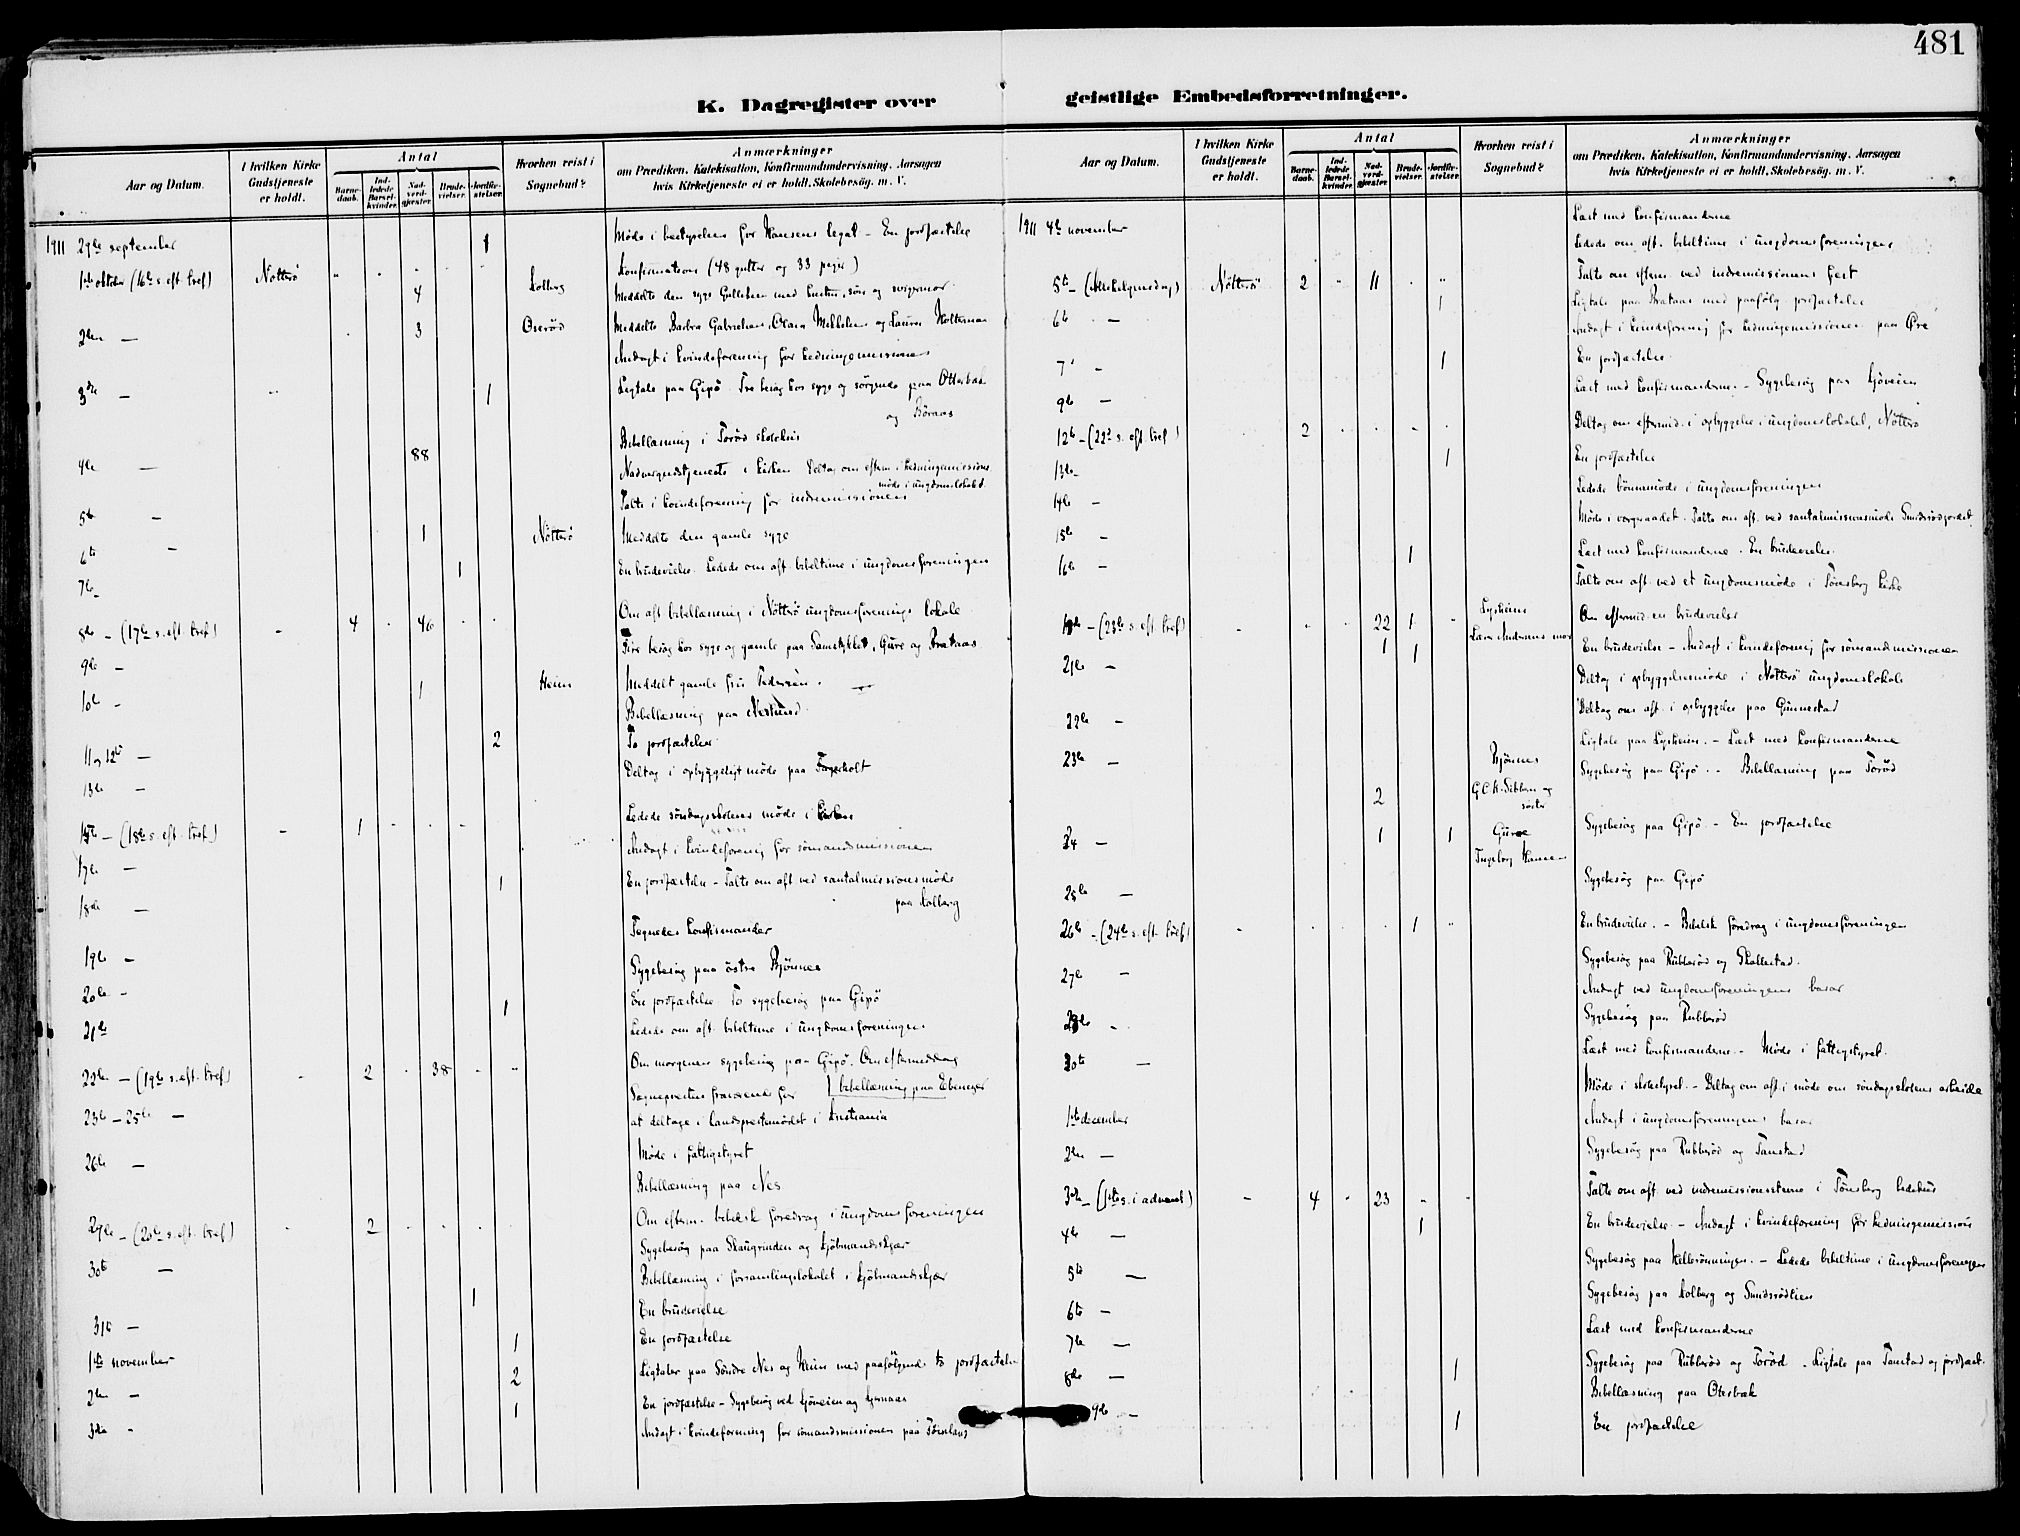 481
K. Dagregister over geistlige Embedsforretninger.
Aar og Datum.
I hvilken Kirke Gudstjeneste er holdt.
Antal
Barnedaab.
Indledede Barselkvinder.
Nadverdgjæster.
Brudevielser.
Jordfæstelser.
Hvorhen reist i Sognebud?
Anmærkninger
om Prædiken, Katekisation, Konfirmandundervisning, Aarsagen
hvis Kirketjeneste ei er holdt, Skolebesøg. m. V.
1911 29de september 1 Møde i bestyrelsen for Hansens legat - En jordfæstelse
1ste oktober (16de s. eft. tref) Nøtterø Konfirmation (48 gutter og 33 piger)
4 Kolberg Meddelte den syge Gullesen med hustru, søn og svigermor
2den — 3 Oserød Meddelte Barbra Gabrielsen, Clara Mikkelsen og Laura
Andagt i kvindeforening for hedningemissionen
3die — 1 Ligtale paa Gipø. Tre besøg hos syge og sørgende paa Otterbæk
og Böraas
Bibellæsning i Torød skolehus
4de — 88 Nadvergudstjeneste i kirken Deltog om efterm. i hedningemissions
møde i ungdomslokalet
5te — Talte i kvindeforening for indremissionen
6te — 1 Nøtterø Meddelte den gamle syge
7de — 1 En brudevielse. Ledede om aft. bibeltime i ungdomsforeningen
8de — (17de s. eft. tref) 4 46 Om aft. bibellæsning i Nøtterø ungdomsforenings lokale
9de — Fire besøg hos syge og gamle paa Gure og Brataas
10de — 1 Heien Meddelt gamle fru Pedersen.
Bibellæsning paa
11 og 12te — 2 To jordfæstelser
13de — Deltog i opbyggeligt møde paa
15de — (18de s. eft. tref) 1 Ledede søndagsskolens møde i kirken
17de — Andagt i kvindeforening for sømandsmissionen
18de — 1 En jordfæstelse - Talte om aft. ved santalmissionsmøde
paa Kolberg
19de — Tegnedes konfirmander
20de — Sygebesøg paa østre Bjønnes
21de 1 En jordfæstelse. To sygebesøg paa Gipø
Ledede om aft. bibeltime i ungdomsforeningen
22de — (19de s. eft. tref) 2 38 Om morgenen sygebesøg paa Gipø. Om eftermiddag
bibellæsning paa Ebeneser
23de — 25de — Sognepresten fraværende for
at deltage i landsprestemødet i Kristiania
26de — Møde i fattigstyret
Bibellæsning paa Nes
29de — (20de s. eft. tref) 2 Om efterm. bibelsk foredrag i ungdomsforeningen
30te — Sygebesøg paa og Kjøbmandskjær
Bibellæsning i forsamlingslokalet i Kjøbmandskjær
31te — 1 En brudevielse
1ste november 1 En jordfæstelse
2den — 2 Ligtaler paa Søndre Nes og Heien med paafølgende to jordfæstelser
3die 1 En jordfæstelse - Sygebesøg ved og
Andagt i kvindeforening for sømandsmissionen paa
1911 4de november Læst med konfirmanderne
Ledede om aft. bibeltime i ungdomsforeningen
5te — (Allehelgensdag) Nøtterø 2 11 Talte om efterm. ved indremissionens fest
6te — 1 Ligtale paa Brataas med paafølg. jordfæstelse
Andagt i kvindeforening for hedningemissionen paa Øre
7de — 1 En jordfæstelse
9de — Læst med konfirmanderne. - Sygebesøg paa
12te — (22de s. eft. tref) 2 Deltog om eftermid. i opbyggelse i ungdomslokalet, Nøtterø
13de — 1 En jordfæstelse
14de — Ledede bønnemøde i ungdomsforeningen
15de — Møde i vergeraadet. Talte om aft. ved santalmissionsmøde Smidsrødjordet
16de — 1 Læst med konfirmanderne. En brudevielse.
Talte om aft. ved et ungdomsmøde i Tønsberg kirke
19de — (23de s. eft. tref) 22 1 Lysheim Om eftermid. en brudevielse
21de — 1 1 Lars Andersens mor En brudevielse - Andagt i kvindeforening for sømandsmissionen
Deltog i opbyggelsesmøde i Nøtterø ungdomslokale
22de — Deltog om aft. i opbyggelse paa Gunnestad
23de — Bjønnes Ligtale paa Lysheim. - Læst med konfirmanderne
2 G.C.K. og søster Sygebesøg paa Gipø. - Bibellæsning paa Torød
24 — 1 1 Gure Ingeborg Hansen Sygebesøg paa Gipø. - En jordfæstelse
25de — Sygebesøg paa Gipø
26de — (24de s. eft. tref) 1 En brudevielse. - Bibelsk foredrag i ungdomsforeningen
27de — Sygebesøg paa Rubberød og Skallestad.
Andagt ved ungdomsforeningens basar
Sygebesøg paa Rubberød
30te — Læst med konfirmanderne - Møde i fattigstyret.
Møde i skolestyret. - Deltog om aft. i møde om søndagsskolens arbeide
1ste december Andagt i ungdomsforeningens basar
2den — Sygebesøg paa Rubberød og Tanstad
3die — (1ste s. i advent) 4 23 Talte om aft. ved indremissionsstevne i Tønsberg bedehus
4de — 1 En brudevielse - Andagt i kvindeforening for hedningemission
5te — Sygebesøg paa - Ledede bibeltime i ungdomsforeningen
6te — Sygebesøg paa Kolberg og
7de — Læst med konfirmanderne
8de — 1 Sygebesøg paa Rubberød og Torød - Ligtale paa Tanstad og jordfæst.
Bibellæsning paa Oterbæk
9de — 1 En jordfæstelse